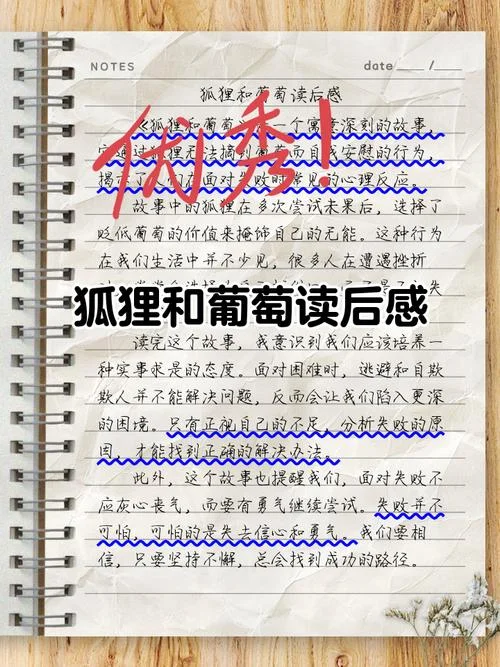 NOTES
date ____ / ____
狐狸和葡萄读后感
优秀！
《狐狸和葡萄 一个寓意深刻的故事，
狐狸无法摘到葡萄而自我安慰的行为，
揭示 人们在面对失败时常见的心理反应。
故事中的狐狸在多次尝试未果后，选择了
贬低葡萄的价值来掩饰自己的无能。这种行为
在我们生活中并不少见，很多人在遭遇挫折
失
狐狸和葡萄读后感
读完这个故事，我意识到我们应该培养一
种实事求是的态度。面对困难时，逃避和自欺
欺人并不能解决问题，反而会让我们陷入更深
的困境。只有正视自己的不足，分析失败的原
因，才能找到正确的解决办法。
此外，这个故事也提醒我们，面对失败不
应灰心丧气，而要有勇气继续尝试。失败并不
可怕，可怕的是失去信心和勇气。我们要相
信，只要坚持不懈，总会找到成功的路径。